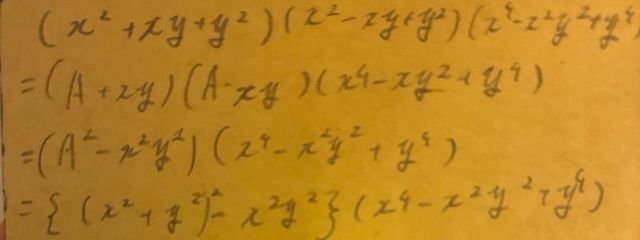 (x² + xy + y²)(x² - xy + y²)(x⁴ - x²y² + y⁴
= (A + xy)(A - xy)(x⁴ - xy² + y⁴)
= (A² - x²y²)(x⁴ - x²y² + y⁴)
= {(x² + y²)² - x²y²}(x⁴ - x²y² + y⁴)